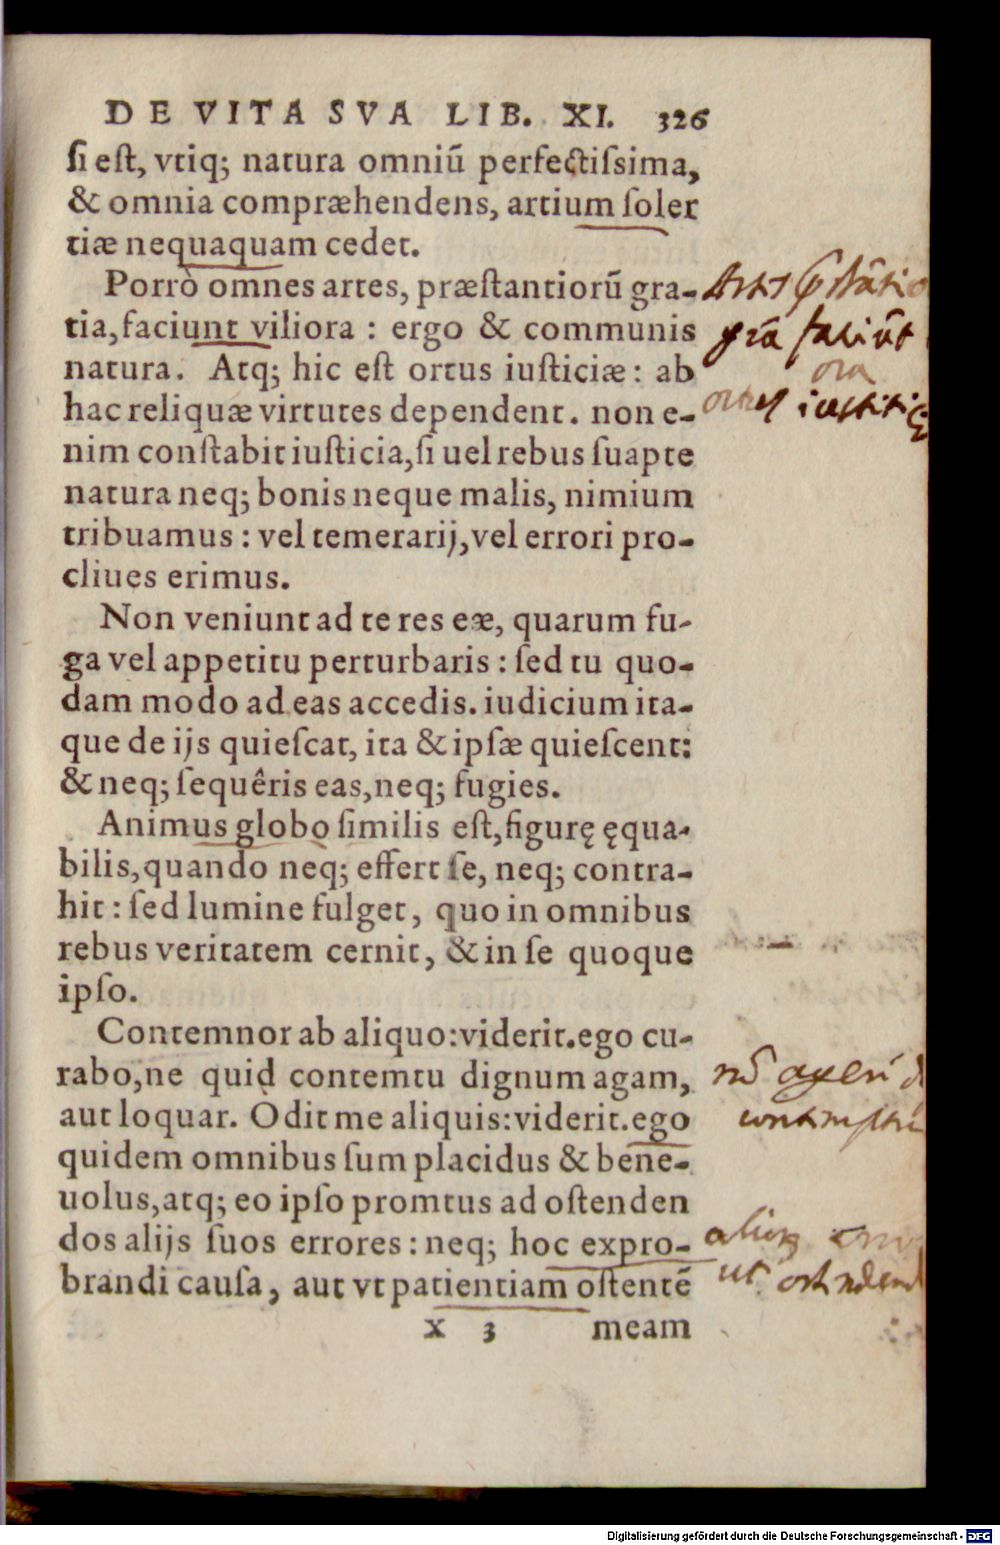 DE VITA SVA LIB. XI. 326
ſi eſt, vtiq; natura omniũ perfectiſsima,
& omnia compræhendens, artium ſoler
tiæ nequaquam cedet.
Porrò omnes artes, præſtantiorũ gra-
tia, faciunt viliora : ergo & communis
natura. Atq; hic eſt ortus iuſticiæ: ab
hac reliquæ virtutes dependent. non e-
nim conſtabit iuſticia, ſi uel rebus ſuapte
natura neq; bonis neque malis, nimium
tribuamus : vel temerarij, vel errori pro-
cliues erimus.
Non veniunt ad te res eæ, quarum fu-
ga vel appetitu perturbaris : ſed tu quo-
dam modo ad eas accedis. iudicium ita-
que de ijs quieſcat, ita & ipſæ quieſcent:
& neq; ſequêris eas, neq; fugies.
Animus globo ſimilis eſt, figurę ęqua-
bilis, quando neq; effert ſe, neq; contra-
hit : ſed lumine fulget, quo in omnibus
rebus veritatem cernit, & in ſe quoque
ipſo.
Contemnor ab aliquo: viderit. ego cu-
rabo, ne quid contemtu dignum agam,
aut loquar. Odit me aliquis: viderit. ego
quidem omnibus ſum placidus & bene-
uolus, atq; eo ipſo promtus ad oſtenden
dos alijs ſuos errores : neq; hoc expro-
brandi cauſa, aut vt patientiam oſtentẽ
x 3 meam
iustitiæ
Digitalisierung gefördert durch die Deutsche Forschungsgemeinschaft - DFG